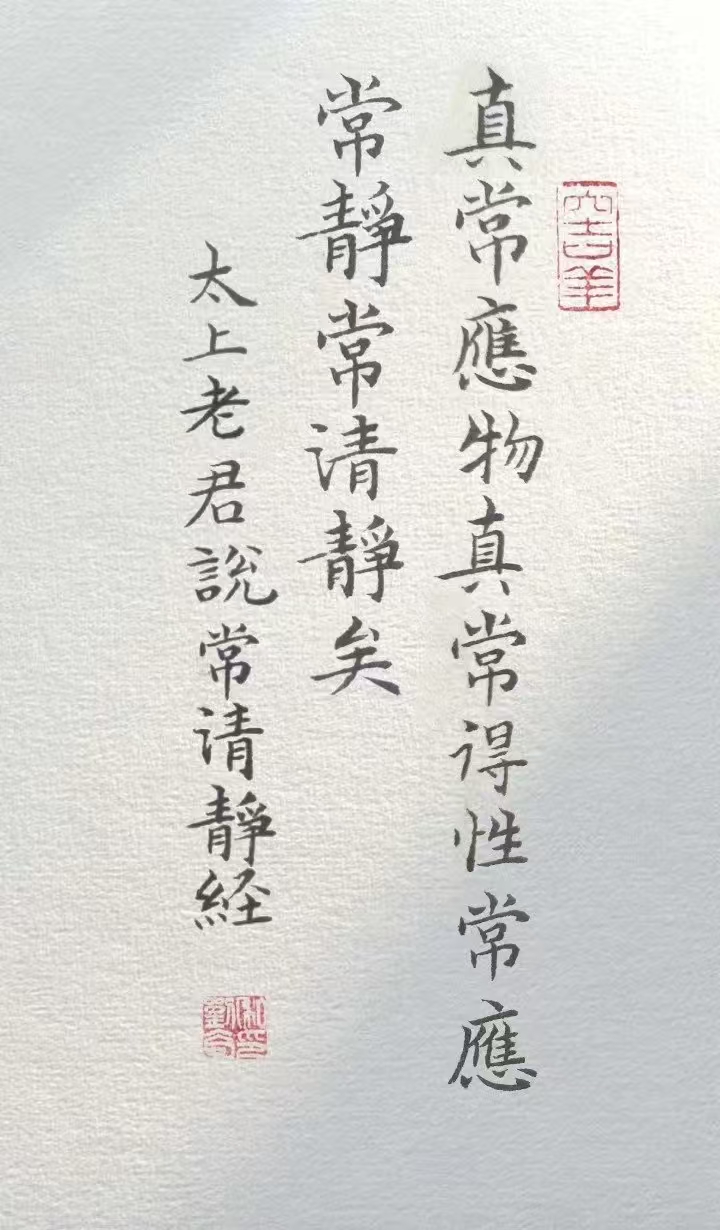 真常應物真常得性常應
常靜常请靜矣
太上老君説常请靜経